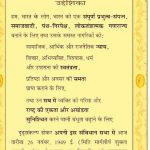 उद्देशिका
हम, भारत के लोग, भारत को एक संपूर्ण प्रभुत्व-संपन्न,
समाजवादी, पंथ-निरपेक्ष, लोकतंत्रात्मक गणराज्य
बनाने के लिए तथा उसके समस्त नागरिकों को:
सामाजिक, आर्थिक और राजनैतिक न्याय,
विचार, अभिव्यक्ति, विश्वास, धर्म
और उपासना की स्वतंत्रता,
प्रतिष्ठा और अवसर की समता
प्राप्त कराने के लिए,
तथा उन सब में व्यक्ति की गरिमा और
राष्ट्र की एकता और अखंडता
सुनिश्चित करने वाली बंधुता बढ़ाने के लिए
दृढ़संकल्प होकर अपनी इस संविधान सभा में आज
तारीख 26 नवंबर, 1949 ई. (मिति मार्गशीर्ष शुक्ला